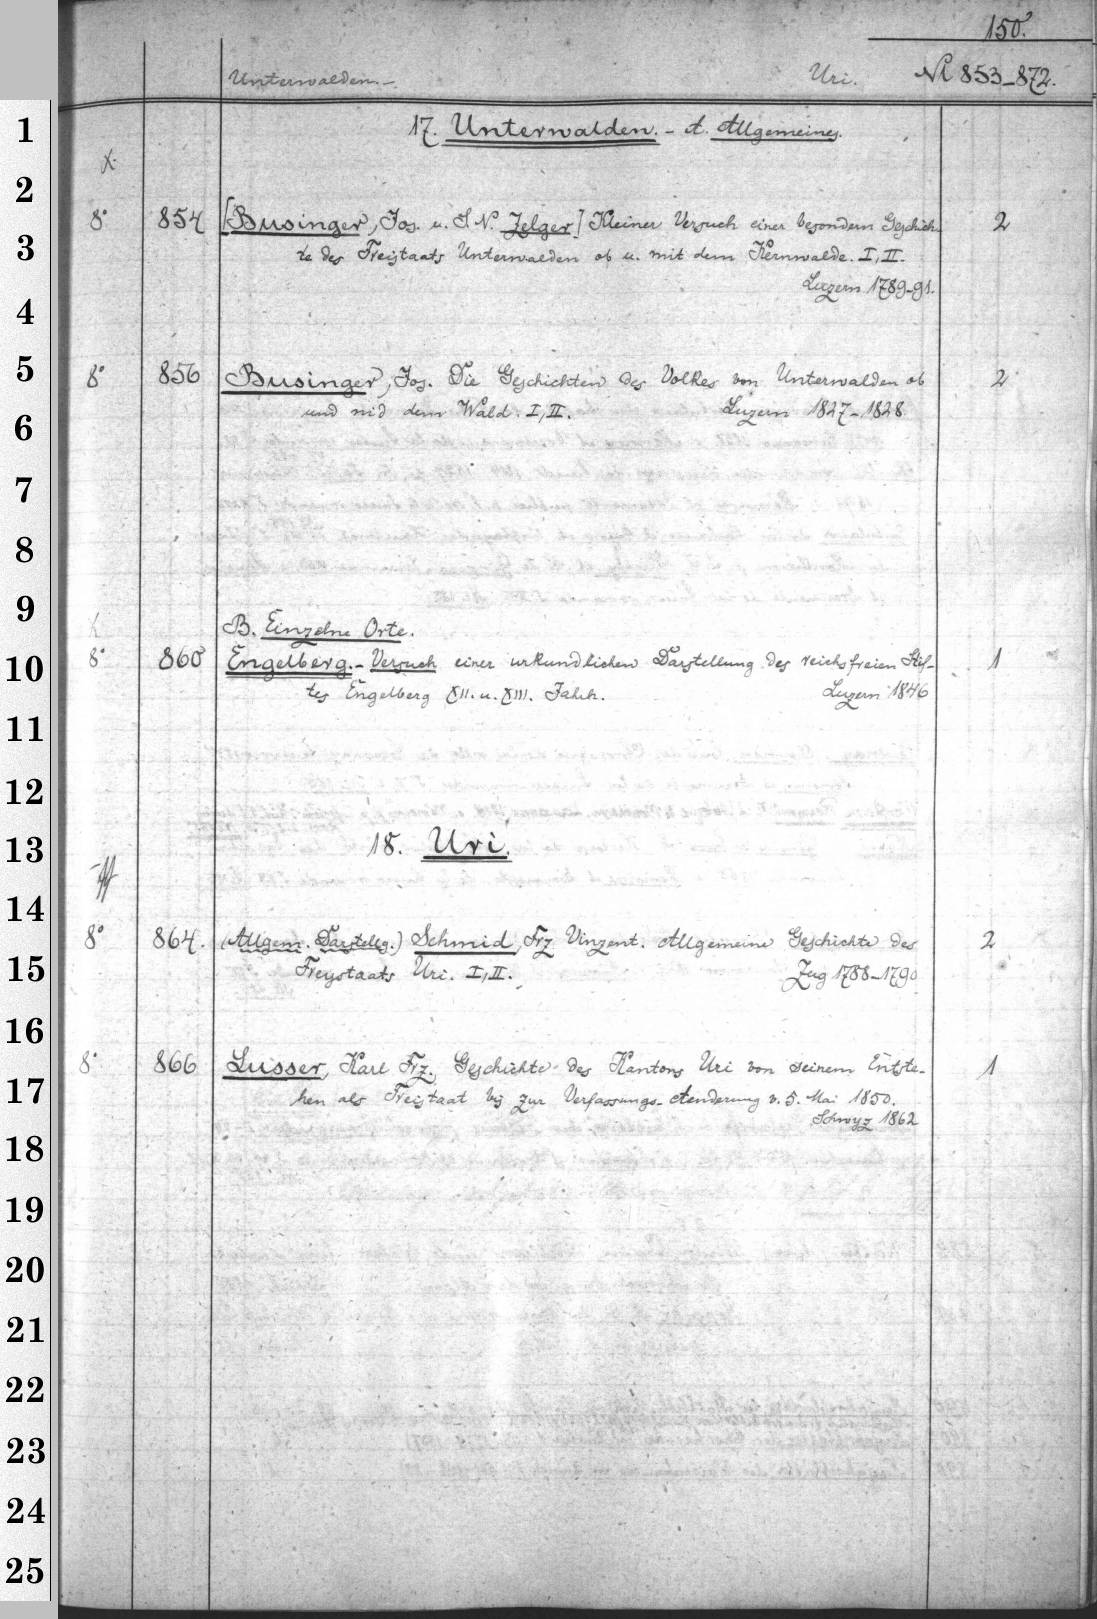 150.
Unterwalden.- Uri. No 853-872.
1
17. Unterwalden. - A. Allgemeines.
X.
2
8° 854 [Businger, Jos. u. J. N. Zelger] Kleiner Versuch einer besondern Geschich- 2
3
te des Freistaats Unterwalden ob u. mit dem Kernwalde. I, II.
Luzern 1789-91.
4
5
8° 856 Businger, Jos. Die Geschichten des Volkes von Unterwalden ob 2
und nid dem Wald. I, II. Luzern 1827-1828
6
7
8
9
B. Einzelne Orte.
10
8° 860 Engelberg.- Versuch einer urkundlichen Darstellung des reichsfreien Stif- 1
tes Engelberg XII. u. XIII. Jahrh. Luzern 1846
11
12
13
18. Uri.
14
8° 864. (Allgem. Darstellg.) Schmid, Frz Vinzent. Allgemeine Geschichte des 2
15
Freystaats Uri. I, II. Zug 1788-1790
16
8° 866 Lusser, Karl Frz. Geschichte des Kantons Uri von seinem Entste- 1
17
hen als Freistaat bis zur Verfassungs-Aenderung v. 5. Mai 1850.
Schwyz 1862
18
19
20
21
22
23
24
25